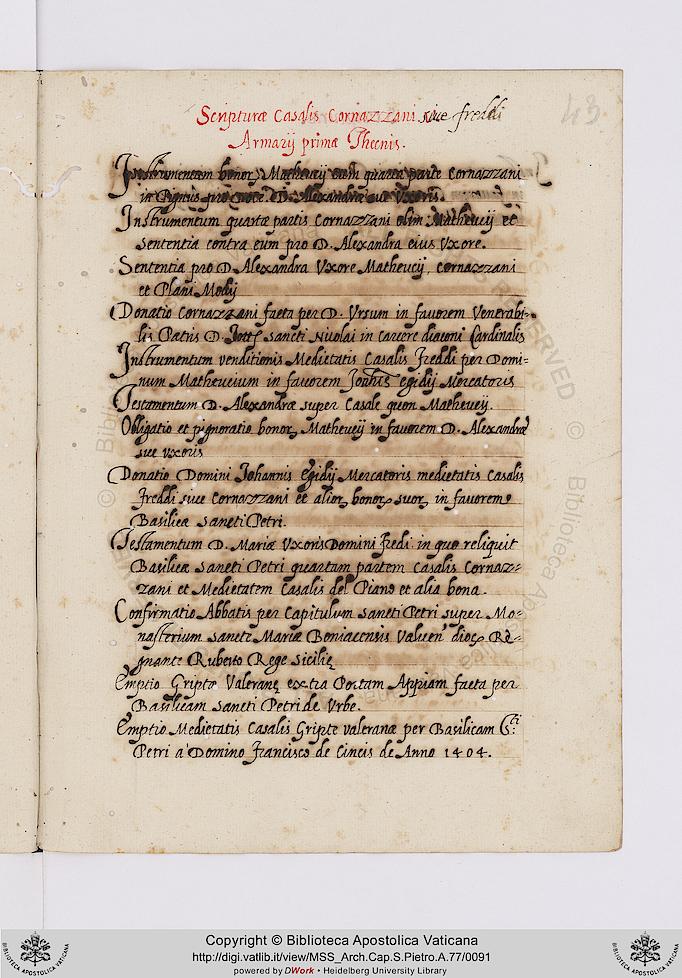 43
Scripturæ Casalis Cornazzani sive freddi
Armarij primæ Thecnis.
Instrumentum bonor, Matheucij cum quarta parte Cornazzani
in pignus pro Dote D. Alexandræ suæ Uxoris.
Instrumentum quartæ partis Cornazzani olim Matheucij et
Sententia contra eum pro D. Alexandra eius Uxore.
Sententia pro D. Alexandra Uxore Matheucij, Cornazzani
et Plani Modij
Donatio Cornazzani facta per D. Ursum in favorem Venerabi-
lis Patris D. sancti Nicolai in carcere diaconi Cardinalis
Instrumentum venditionis Medietatis Casalis Freddi per Domi-
num Matheucium in favorem Egidij Mercatoris
Testamentum D. Alexandræ super Casale Matheucij.
Obligatio et pignoratio bonor, Matheucij in favorem D. Alexandræ
suæ uxoris
Donatio Domini Johannis Egidij Mercatoris medietatis Casalis
Freddi sive Cornazzani et alior, bonor, suor, in favorem
Basilicæ Sancti Petri.
Testamentum D. Mariæ Uxoris Domini Fredi in quo reliquit
Basilicæ Sancti Petri quartam partem Casalis Cornaz-
zani et Medietatem Casalis del Piano et alia bona.
Confirmatio Abbatis per Capitulum Sancti Petri super Mo-
nasterium Sanctæ Mariæ dioc, Re-
gnante Ruberto Rege Sicilię
Emptio Griptæ Valeranę extra Portam Appiam facta per
Basilicam Sancti Petri de Urbe.
Emptio Medietatis Casalis Gripte valeranæ per Basilicam S.ti
Petri a Domino Francisco de Cincis de Anno 1404.
Copyright © Biblioteca Apostolica Vaticana
http://digi.vatlib.it/view/MSS_Arch.Cap.S.Pietro.A.77/0091
powered by DWork • Heidelberg University Library
BIBLIOTECA APOSTOLICA VATICANA
BIBLIOTECA APOSTOLICA VATICANA